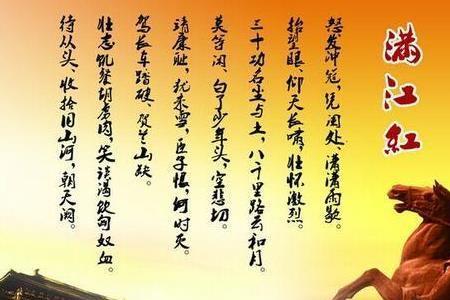 满江紅
怒发冲冠，凭阑处、潇潇雨歇。
抬望眼、仰天长啸，壮怀激烈。
三十功名尘与土，八千里路云和月。
莫等闲、白了少年头，空悲切。
靖康耻，犹未雪，臣子恨，何时灭。
驾长车踏破、贺兰山缺。
壮志饥餐胡虏肉，笑谈渴饮匈奴血。
待从头、收拾旧山河，朝天阙。